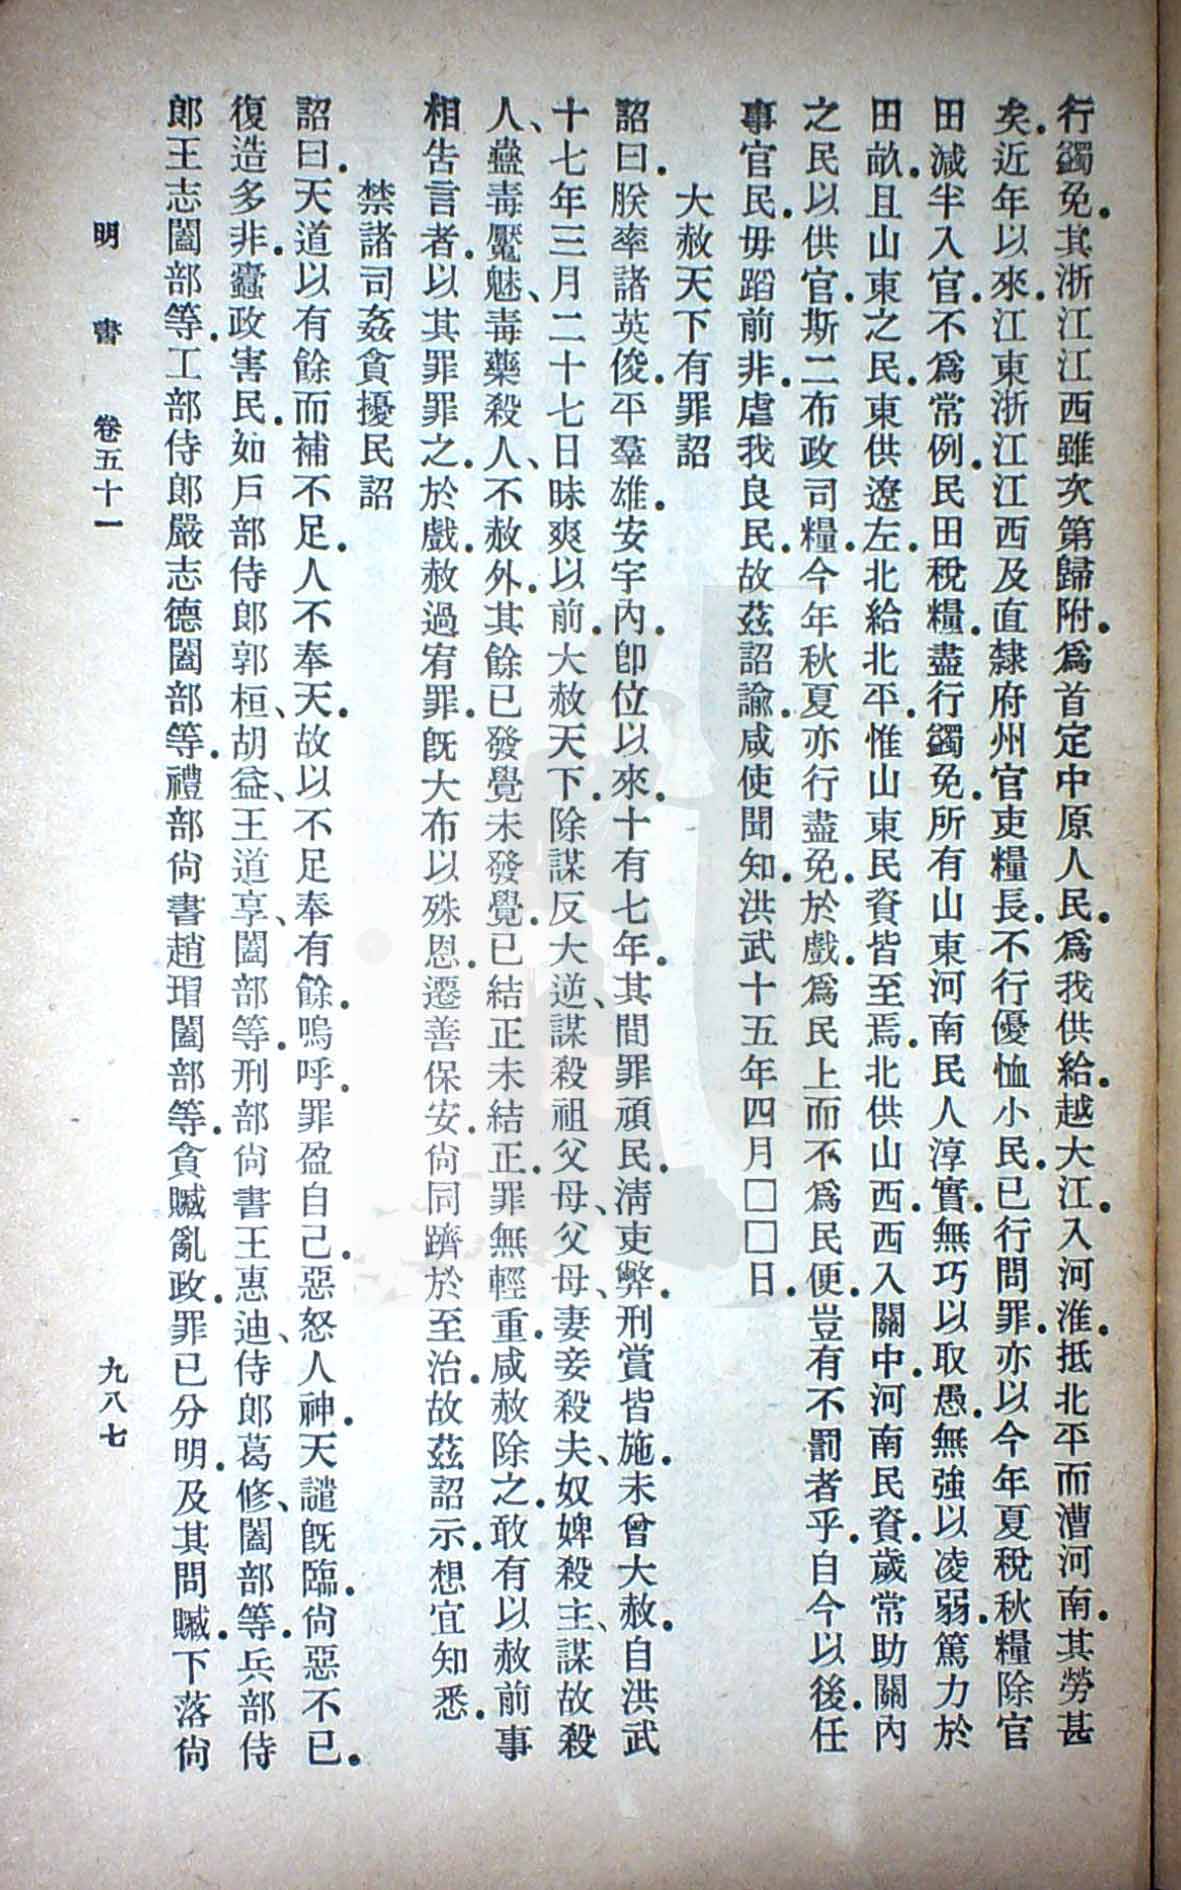 行蠲免.其浙江江西雖次第歸附.爲首定中原人民.爲我供給.越大江.入河淮.抵北平而漕河南.其勞甚
矣.近年以來.江東浙江江西及直隸府州官吏糧長.不行優恤小民.已行問罪.亦以今年夏稅秋糧除官
田減半入官.不爲常例.民田稅糧.盡行蠲免.所有山東河南民人淳實.無巧以取愚.無強以凌弱.篤力於
田畝.且山東之民.東供遼左.北給北平.惟山東民資皆至焉.北供山西.西入關中.河南民資.歲常助關內
之民以供官.斯二布政司糧.今年秋夏亦行盡免.於戲.爲民上而不爲民便.豈有不罰者乎.自今以後.任
事官民.毋蹈前非.虐我良民.故茲詔諭.咸使聞知.洪武十五年四月□□日.
大赦天下有罪詔
詔曰.朕率諸英俊.平羣雄.安宇內.卽位以來.十有七年.其間罪頑民.淸吏弊.刑賞皆施.未曾大赦.自洪武
十七年三月二十七日昧爽以前.大赦天下.除謀反大逆、謀殺祖父母、父母、妻妾殺夫、奴婢殺主、謀故殺
人、蠱毒魘魅、毒藥殺人、不赦外.其餘已發覺未發覺.已結正未結正.罪無輕重.咸赦除之.敢有以赦前事
相告言者.以其罪罪之.於戲.赦過宥罪.旣大布以殊恩.遷善保安.尙同躋於至治.故茲詔示.想宜知悉.
禁諸司姦貪擾民詔
詔曰.天道以有餘而補不足.人不奉天.故以不足奉有餘.嗚呼.罪盈自己.惡怒人神.天譴旣臨.尙惡不已.
復造多非.蠹政害民.如戶部侍郎郭桓、胡益、王道亨、闔部等.刑部尙書王惠迪、侍郎葛修、闔部等.兵部侍
郎王志闔部等.工部侍郎嚴志德闔部等.禮部尙書趙瑁闔部等.貪贓亂政.罪已分明.及其問贓.下落尙
明書 卷五十一 九八七